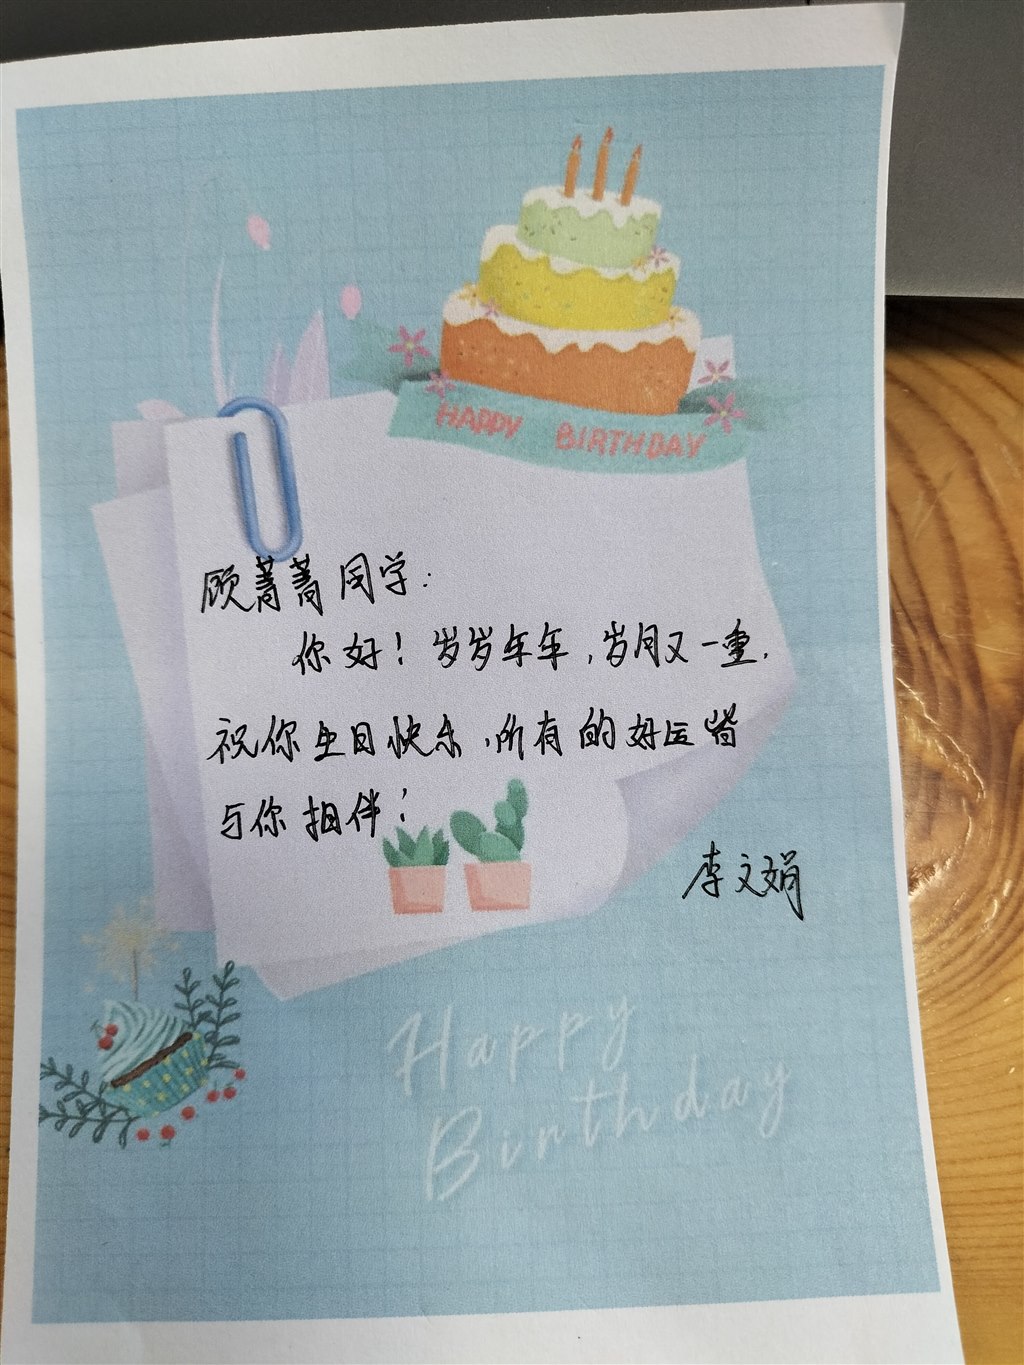 HAPPY BIRTHDAY
顾菁菁同学:
你好！岁岁年年,岁月又一重,
祝你生日快乐,所有的好运皆
与你相伴！
李文娟
Happy
Birthday